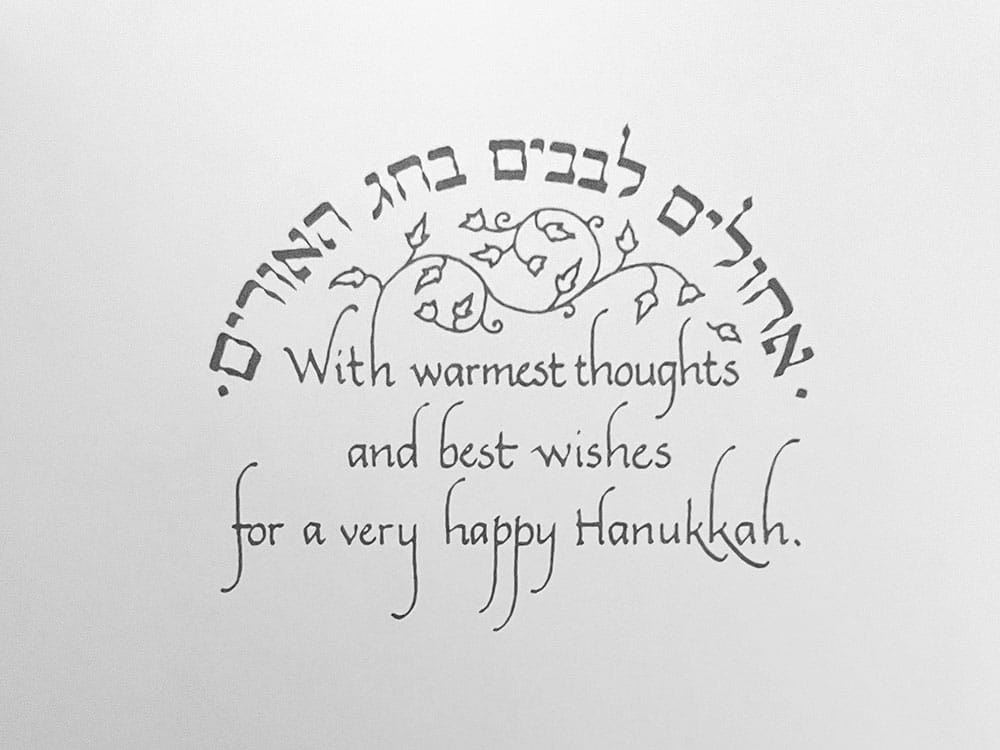 ·אחולים לבבים בחג האורים·
With warmest thoughts
and best wishes
for a very happy Hanukkah.